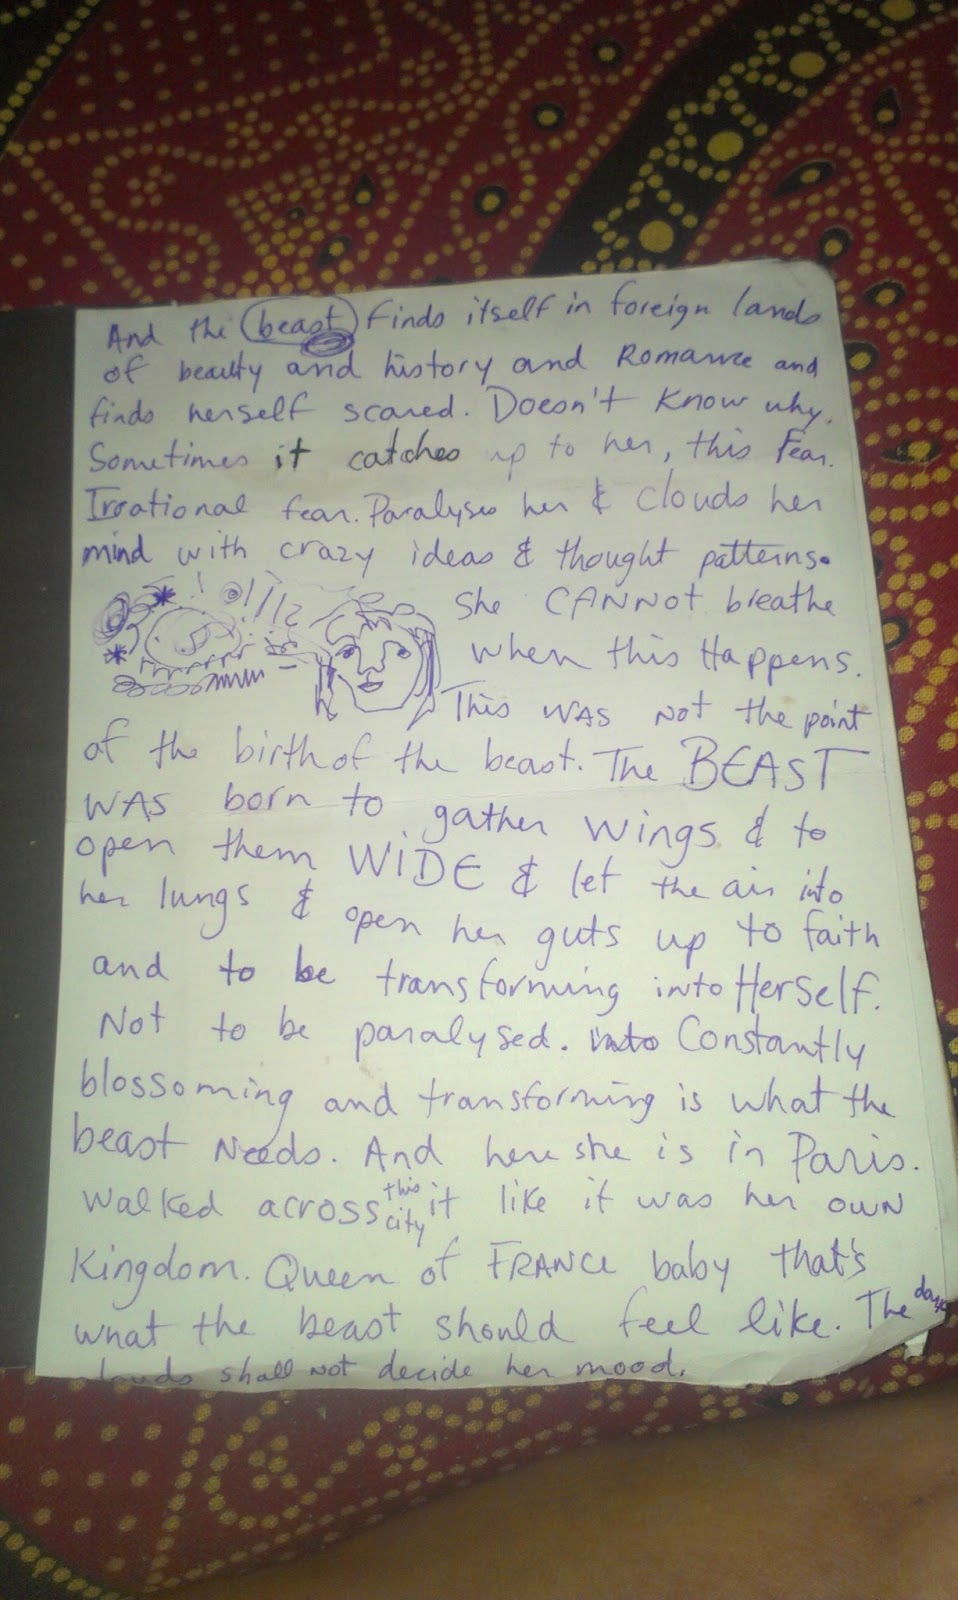 And the beast finds itself in foreign lands
of beauty and history and Romance and
finds herself scared. Doesn't know why.
Sometimes it catches up to her, this Fear.
Irrational fear. Paralyses her & clouds her
mind with crazy ideas & thought patterns.
She CANNOT breathe
when this Happens.
This WAS Not the point
of the birth of the beast. The BEAST
WAS born to gather wings & to
open them WIDE & let the air into
her lungs & open her guts up to faith
and to be transforming into Herself.
Not to be paralysed. into Constantly
blossoming and transforming is what the
beast Needs. And here she is in Paris.
Walked across this city it like it was her own
Kingdom. Queen of FRANCE baby that's
what the beast should feel like. The dark
clouds shall not decide her mood.